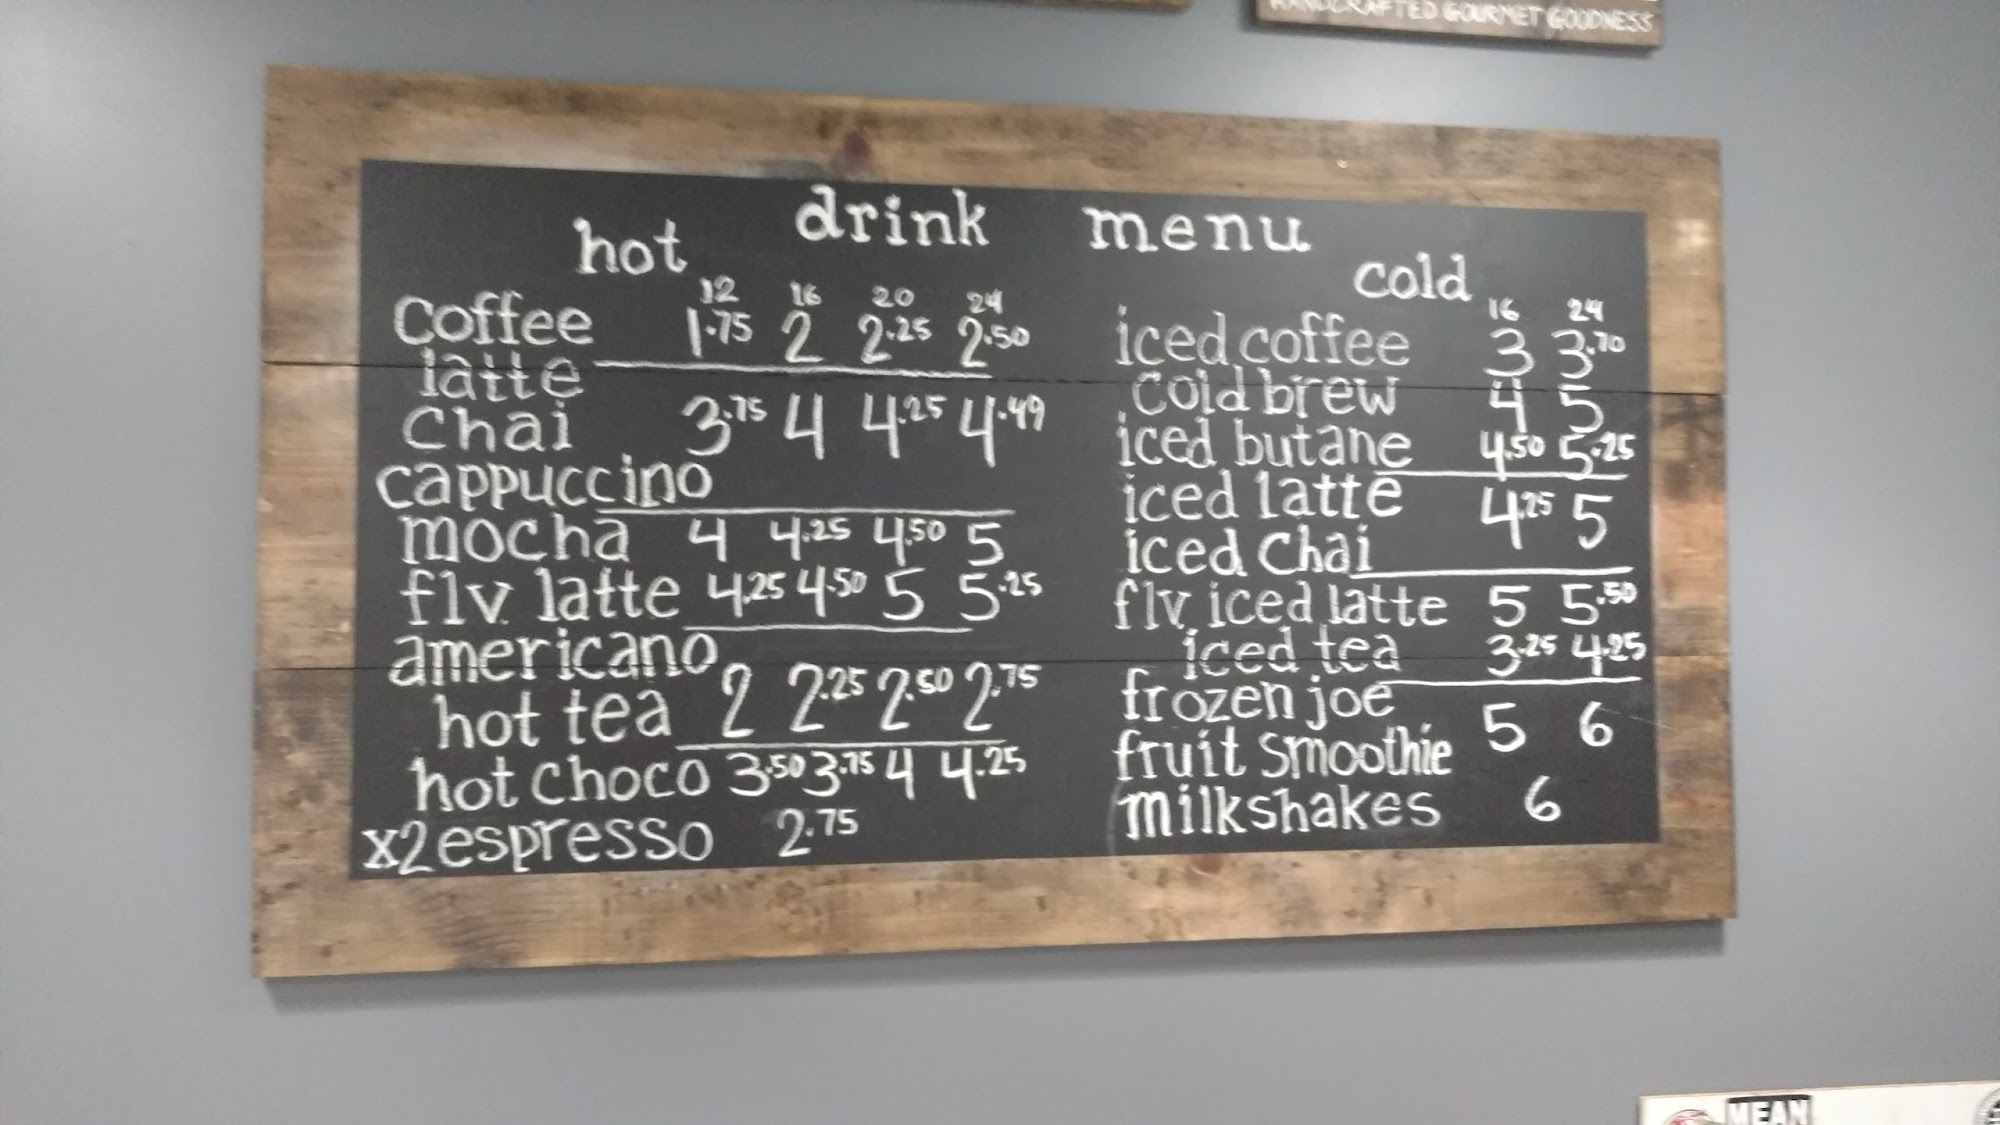 HANDCRAFTED GOURMET GOODNESS
drink menu
hot
12 16 20 24
coffee 1.75 2 2.25 2.50
latte
chai 3.75 4 4.25 4.49
cappuccino
mocha 4 4.25 4.50 5
flv. latte 4.25 4.50 5 5.25
americano
hot tea 2 2.25 2.50 2.75
hot choco 3.50 3.75 4 4.25
x2 espresso 2.75
cold
16 24
iced coffee 3 3.70
cold brew 4 5
iced butane 4.50 5.25
iced latte 4.25 5
iced chai
flv. iced latte 5 5.50
iced tea 3.25 4.25
frozen joe
fruit smoothie 5 6
milkshakes 6
MEAN